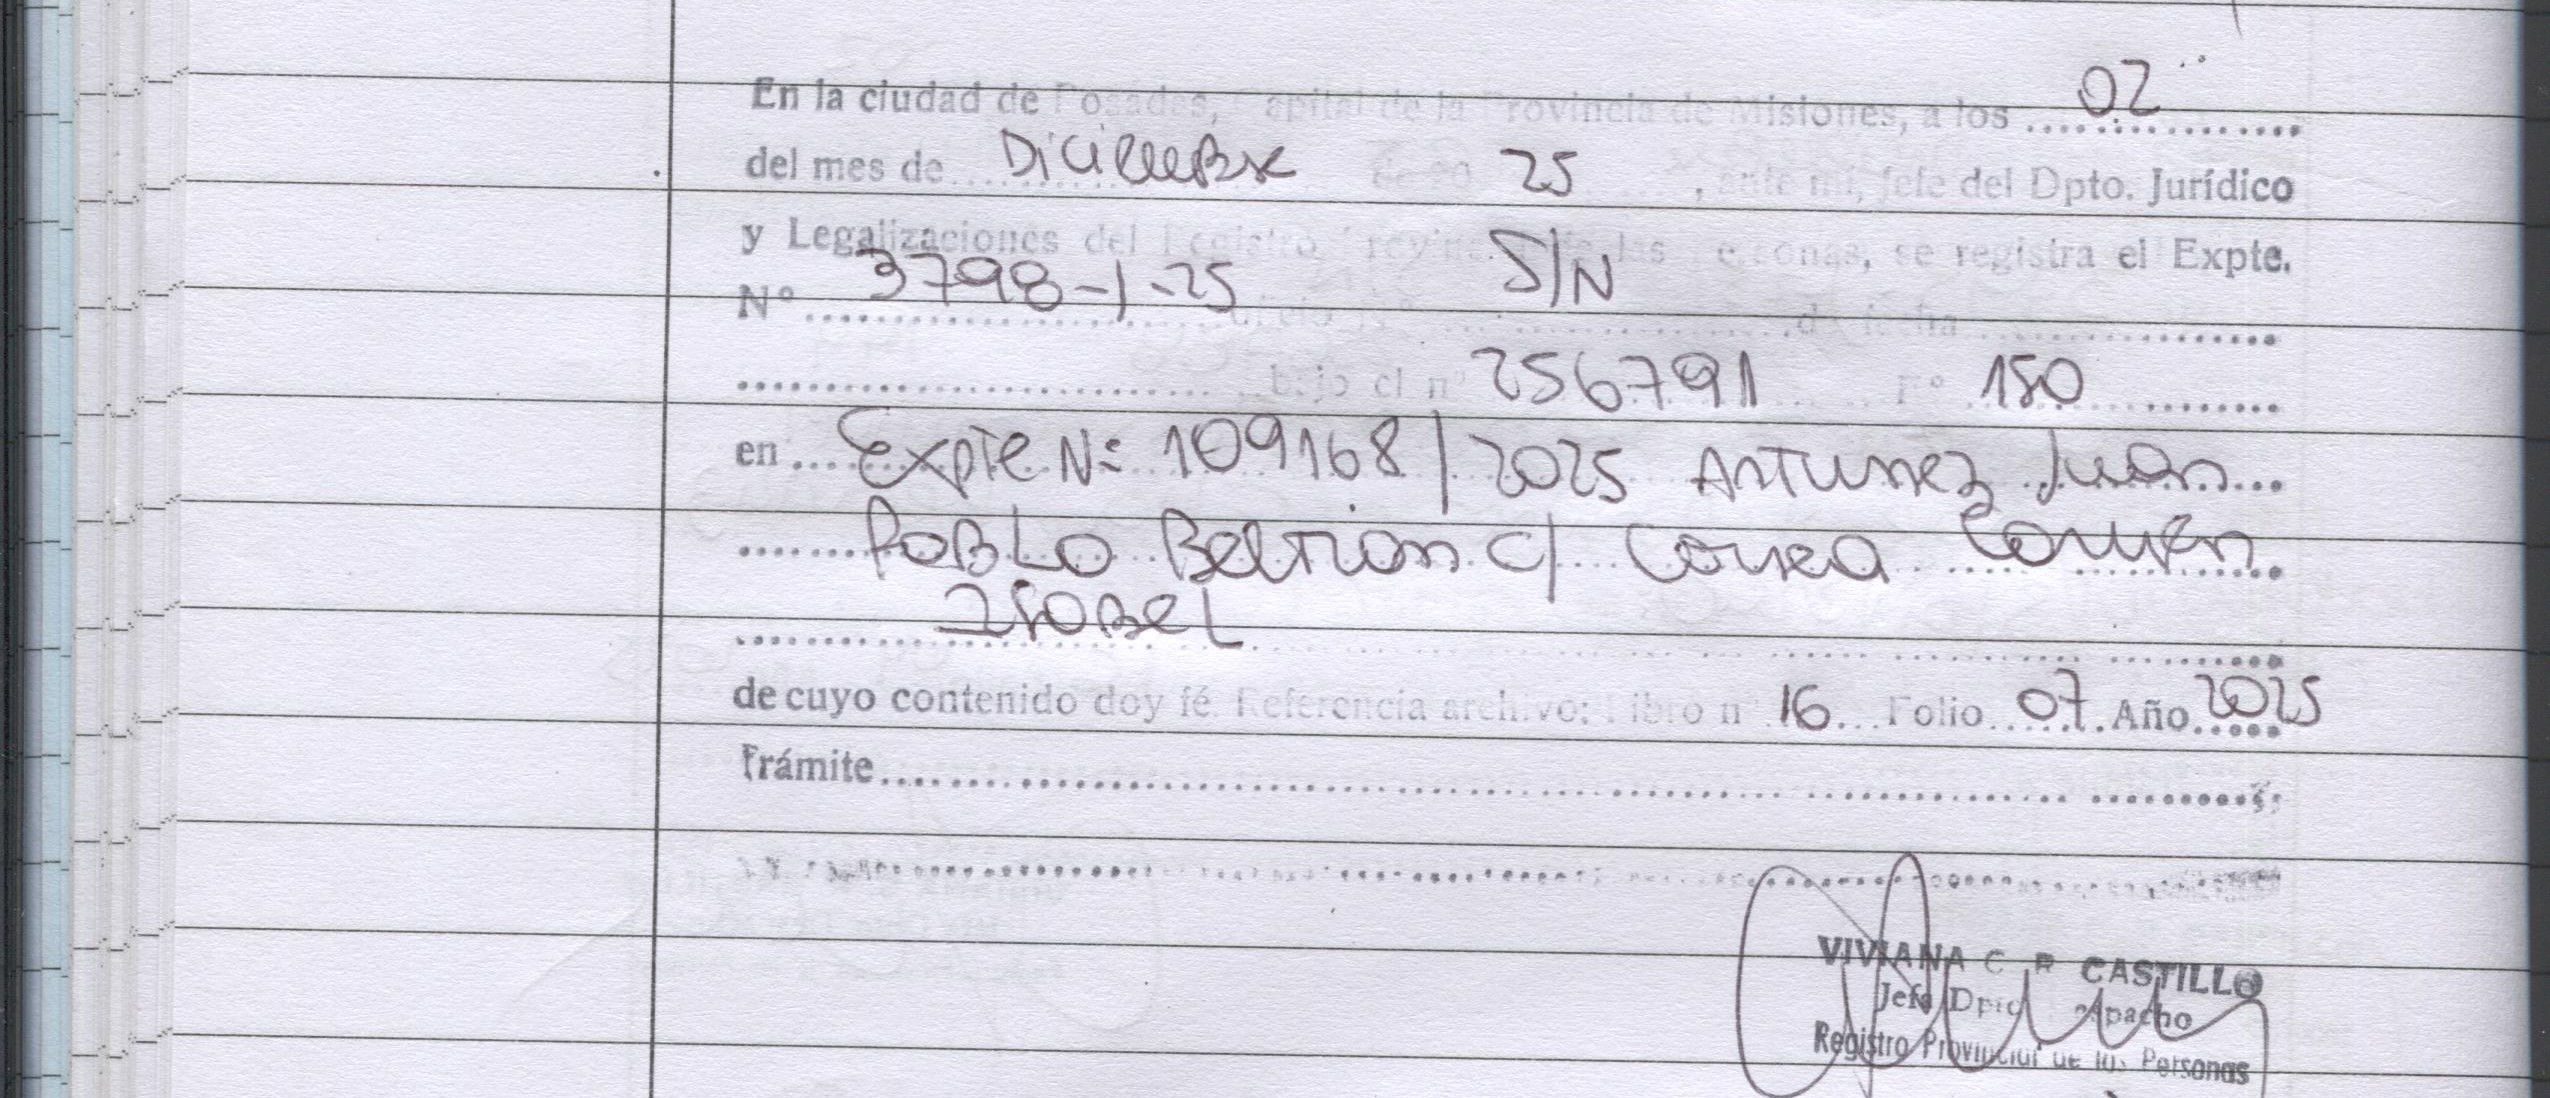 En la ciudad de Posadas, Capital de la Provincia de Misiones, a los 02
del mes de Diciembre de 20 25, ante mi, Jefe del Dpto. Jurídico
y Legalizaciones del Registro Provincial de las Personas, se registra el Expte.
Nº 3798-1-25 oficio Nº S/N de fecha
bajo el nº 256791 Fº 150
en Expte Nº 109168/2025 Antunez Juan
Pablo Beltran c/ Correa Carmen
Isabel
de cuyo contenido doy fé Referencia archivo: Libro nº 16 Folio 07 Año 2025
Trámite
VIVIANA C. R. CASTILLO
Jefe Dpto Despacho
Registro Provincial de las Personas